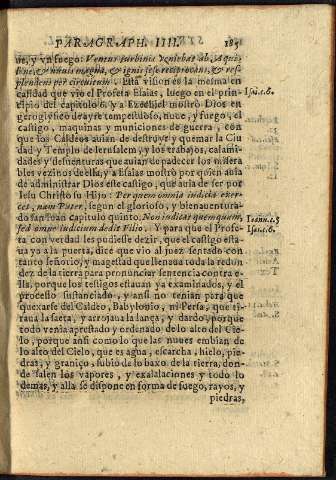 PARAGRAPH. IIII.
ue, y vn fuego: Ventus turbinis veniebat ab, Aquilone, & nuuis magna, & ignis se se reciprocans, & resplendens per circuitum. Esta vision es la mesma en
calidad que vio el Profeta Esaias, luego en el prin-
Isai.c.6.
cipio del capitulo 6. y a Ezechiel mostrò Dios en
geroglyfico de ayre tempestuoso, nuue, y fuego, el
castigo, maquinas y municiones de guerra, con
que los Caldeos auian de destruyr y quemar la Ciu
dad y Templo de Ierusalem, y los trabajos, calami-
dades y desuenturas que auian de padecer los misera
bles vezinos de ella, y a Esaias mostrò por quien auia
de administrar Dios este castigo, que auia de ser por
Iesu Christo su Hijo: Per quem omnia iudicia exer-
cet, nam Pater, segun el glorioso, y bienauentura-
do san Iuan capitulo quinto, Non iudicat quemquam,
Ioann.c.5
sed omne iudicium dedit Filio. Y para que el Profe-
Isai.c.6.
ta con verdad les pudiesse dezir, que el castigo esta-
ua ya a la puerta, dize que vio al juez sentado con
tanto señorio, y magestad que llenaua toda la redon
dez de la tierra para pronunciar sentencia contra e-
lla, porque los testigos estauan ya examinados, y el
processo sustanciado, y ansi no tenian para que
quexarse del Caldeo, Babylonio, ni Persa, que ti-
raua la saeta, y arrojaua la lança, y dardo, porque
todo venia aprestado y ordenado de lo alto del Cie-
lo, porque ansi como lo que las nuues embian de
lo alto del Cielo, que es agua, escarcha, hielo, pie-
dras, y graniço, subio de lo baxo de la tierra, don-
de salen los vapores, y exalalaciones y todo lo
demas, y alla se dispone en forma de fuego, rayos, y
piedras,